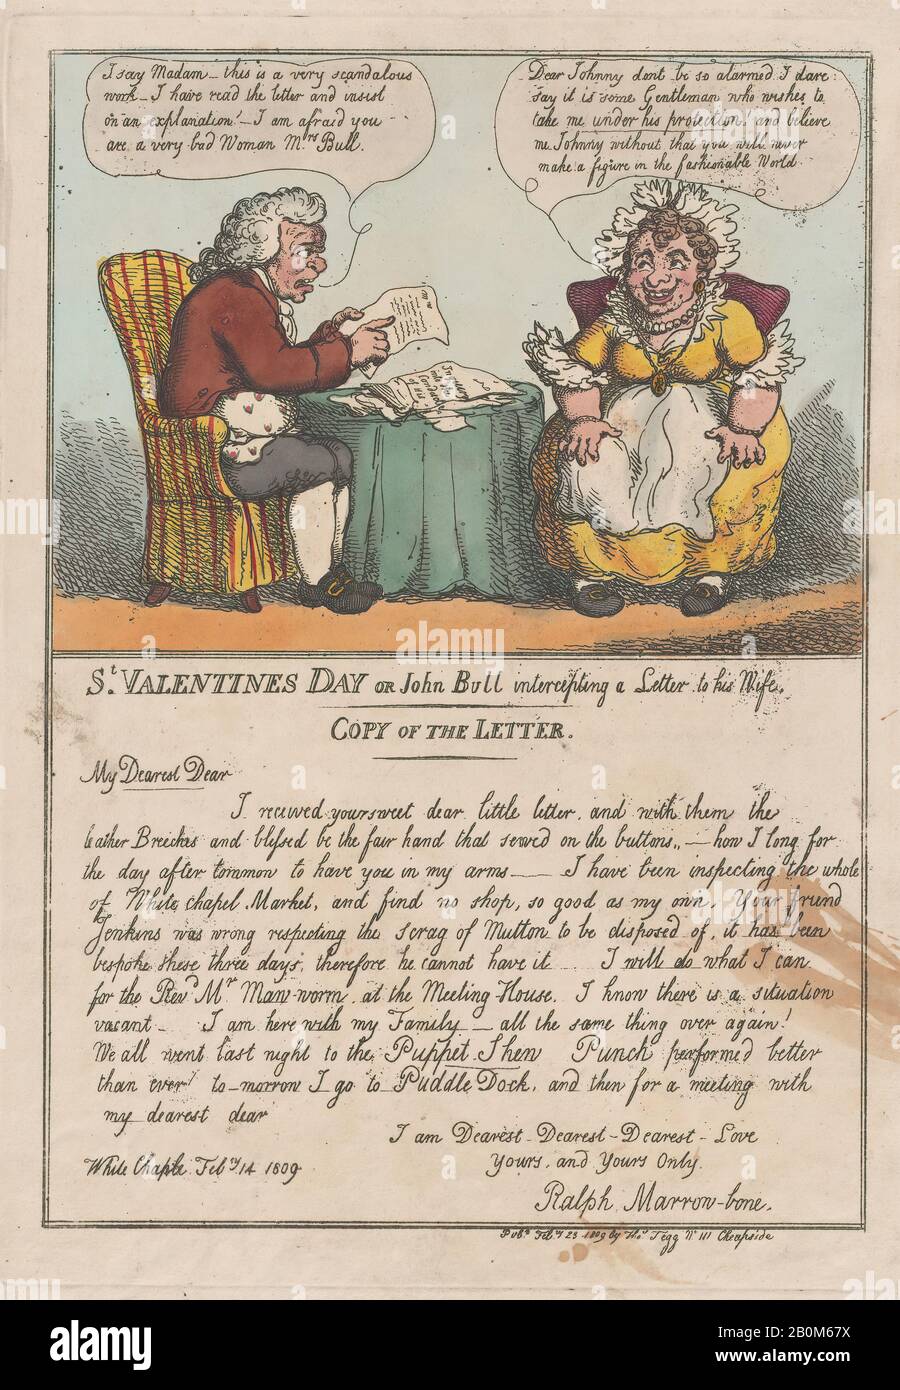 I say Madam – this is a very scandalous
work – I have read the letter and insist
on an explanation! – I am afraid you
are a very bad Woman Mrs Bull.
Dear Johnny dont be so alarmed I dare
say it is some Gentleman who wishes to
take me under his protection! and believe
me Johnny without that you will never
make a figure in the fashionable World
St. VALENTINES DAY OR John Bull intercepting a Letter to his Wife.
COPY OF THE LETTER.
My Dearest Dear
I received your sweet dear little letter, and with them the
leather Breeches and blessed be the fair hand that sewed on the buttons,, — how I long for
the day after tommorow to have you in my arms — I have been inspecting the whole
of White chapel Market, and find no shop, so good as my own. Your friend
Jenkins was wrong respecting the scrag of Mutton to be disposed of, it has been
bespoke these three days, therefore he cannot have it — I will do what I can
for the Revd Mr Maw-worm, at the Meeting House. I know there is a situation
vacant – I am here with my Family – all the same thing over again!
We all went last night to the Puppet Shew Punch performed better
than ever! to-morrow I go to Puddle Dock, and then for a meeting with
my dearest dear
I am Dearest - Dearest - Dearest - Love
White Chaple Feby 14 1809
Yours, and Yours Only.
Ralph Marrow-bone.
Pubd Feby 23 1809 by Thos Tegg No 111 Cheapside
alamy
Image ID: 2B0M67X
www.alamy.com